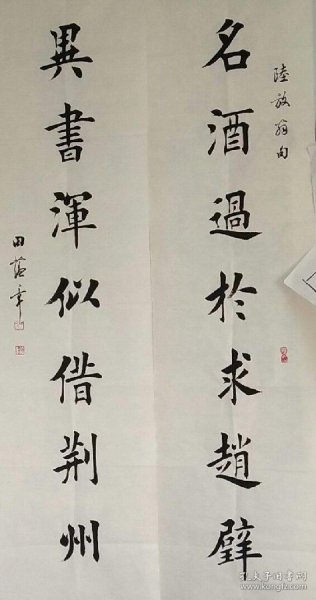 陸放翁句
名酒過於求趙璧
異書渾似借荆州
田蕴章
孔夫子旧书网
www.kongfz.com